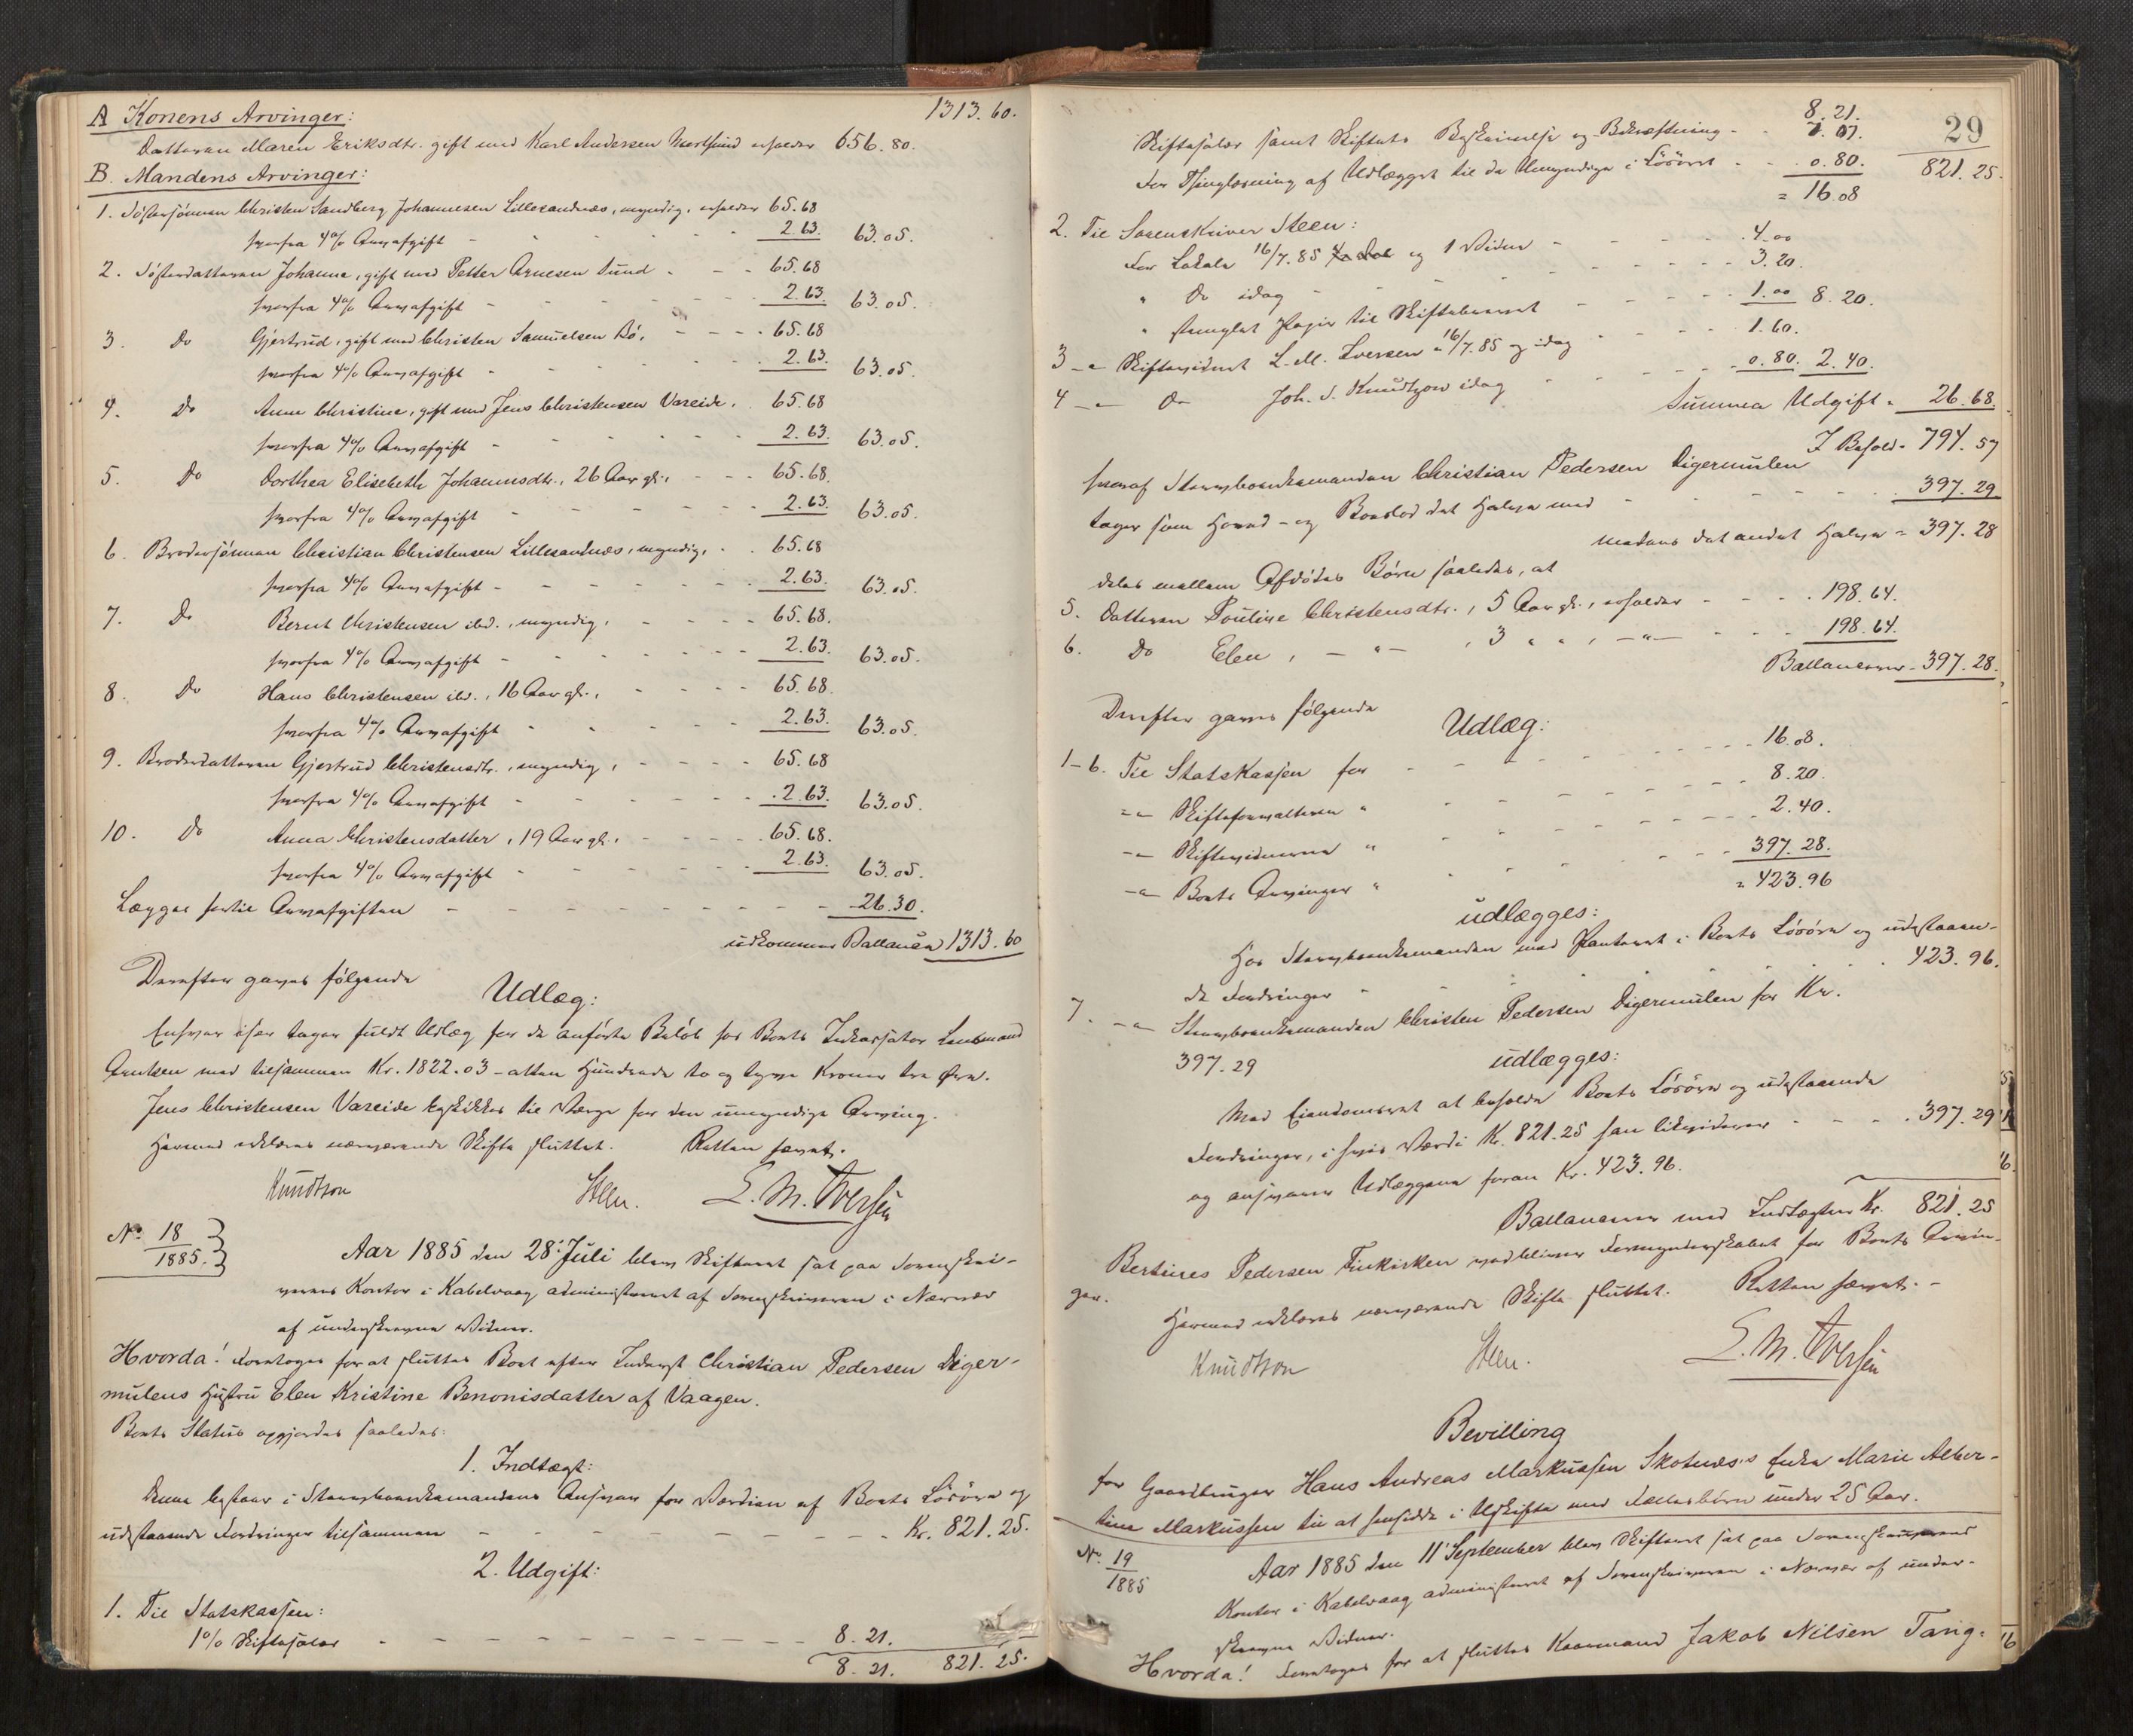 A Konens Arvinger: 1313.60.
Datteren Maren Eriksdtr. gift med Karl Andersen Mortsund erholder 656.80.
B. Mandens Arvinger:
1. Søstersønnen Christen Sandberg Johannesen Lillesandnæs, myndig, erholder 65.68
hvorfra 4% Arveafgift - 2.63. 63.05.
2. Søsterdatteren Johanna, gift med Petter Arnesen Sund - 65.68
hvorfra 4% Arveafgift - 2.63. 63.05.
3. Do Gjertrud, gift med Christen Samuelsen Bø, - 65.68
hvorfra 4% Arveafgift - 2.63. 63.05.
4. Do Anne Christine, gift med Jens Christensen Vareide. 65.68
hvorfra 4% Arveafgift - 2.63. 63.05.
5. Do Dorthea Elisebeth Johannsdtr., 26 Aar gl., - 65.68.
hvorfra 4% Arveafgift - 2.63. 63.05.
6. Brodersønnen Christian Christensen Lillesandnæs, myndig, 65.68
hvorfra 4% Arveafgift - 2.63. 63.05.
7. Do Bernt Christensen ibd., myndig, - 65.68.
hvorfra 4% Arveafgift - 2.63. 63.05.
8. Do Hans Christensen ibd., 16 Aar gl., - 65.68.
hvorfra 4% Arveafgift - 2.63. 63.05.
9. Broderdatteren Gjertrud Christensdtr., myndig, - 65.68
hvorfra 4% Arveafgift - 2.63. 63.05.
10. Do Anna Christensdatter, 19 Aar gl., - 65.68.
hvorfra 4% Arveafgift - 2.63. 63.05.
Lægges hertil Arveafgiften - 26.30.
udkommer Ballancen 1313.60
Derefter gaves følgende
Udlæg:
Enhver især tager fuldt Udlæg for de anførte Beløb hos Boets Inkassator Lensmand
Arntsen med tilsammen Kr. 1822.03 - atten Hundrede to og tyve Kroner tre Øre.
Jens Christensen Vareide beskikkes til Værge for den umyndige Arving.
Hermed erklæres nærværende Skifte sluttet. Retten hævet.
Knudtson Steen. L. M. Iversen
No. 18
1885.
Aar 1885 den 28. Juli blev Skifteret sat paa Sorenskri-
verens Kontor i Kabelvaag administreret af Sorenskriveren i Nærvær
af underskrevne Vidner.
Hvorda! Foretoges for at sluttes Boet efter Inderst Christian Pedersen Diger-
mulens Hustru Elen Kristine Benonisdatter af Vaagen.
Boets Status opgjordes saaledes:
1. Indtægt:
Denne bestaar i Stervboenkemandens Ansvar for Værdien af Boets Løsøre og
udestaaende Fordringer tilsammen - Kr. 821.25.
2. Udgift:
1. Til Statskassen:
1% Skiftesalær - 8.21.
8.21. 821.25.
29
8.21.
Skiftesalær samt Skiftets Beskrivelse og Bekræftning - 7.07.
For Thinglæsning af Udlægget til de Umyndige i Løsøret - 0.80. 821.25.
= 16.08
2. Til Sorenskriver Steen:
For Lokale 16/7.85 og 1 Viden - 4.00
" Do idag - 3.20.
" stemplet Papir til Skiftebrevet - 1.00 8.20.
3 -"- Skiftevidnet L. M. Iversen " 16/7.85 og idag - 1.60.
4 -"- Do Joh. S. Knudtzon idag - 0.80. 2.40.
Summa Udgift = 26.68.
I Behold = 794.57
hvoraf Stervboenkemanden Christian Pedersen Digermulen
tager som Hoved- og Boeslod det Halve med - 397.29
medens det andet Halve = 397.28
deles mellem Afdødes Børn saaledes, at
5. Datteren Pouline Christensdtr., 5 Aar gl., erholder - 198.64.
6. Do Elen, -"-, 3 " ", -"- 198.64.
Ballancerer - 397.28.
Derefter gaves følgende
Udlæg:
1-6. Til Statskassen for - 16.08.
-"- Skifteforvalteren " - 8.20.
-"- Skiftevidnerne " - 2.40.
-"- Boets Arvinger " - 397.28.
= 423.96
udlægges:
Hos Stervboenkemanden med Panteret i Boets Løsøre og udestaaen-
de Fordringer - 423.96.
7. -"- Stervboenkemanden Christen Pedersen Digermulen for Kr.
397.29
udlægges:
Med Eiendomsret at beholde Boets Løsøre og udestaaende
Fordringer, i hvis Værdi Kr. 821.25 han likviderer - 397.29
og ansvarer Udlæggene foran Kr. 423.96.
Ballancerer med Indtægten Kr. 821.25
Bertines Pedersen Finkirken vedbliver Formynderskabet for Boets Arvin-
ger.
Hermed erklæres nærværende Skifte sluttet. Retten hævet.-
Knudtson Steen. L. M. Iversen
Bevilling
for Gaardbruger Hans Andreas Markussen Skotnes's Enke Marie Alber-
tine Markussen til at hensidde i Uskifte med Fællesbørn under 25 Aar.
No. 19
1885
Aar 1885 den 11 September blev Skifteret sat paa Sorenskriverens
Kontor i Kabelvaag administreret af Sorenskriveren i Nærvær af under-
skrevne Vidner.
Hvorda! Foretoges for at sluttes Kaarmand Jakob Nilsen Tang-